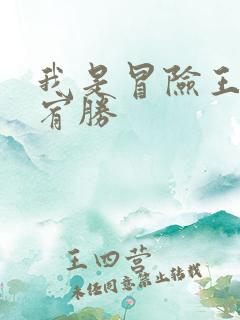 我是冒險王
宵勝
王四营
未经同意禁止转载